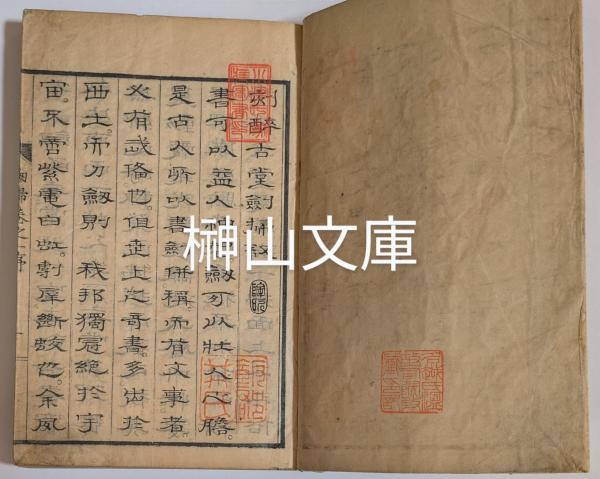 刻醉古堂劍掃叙
書可以益人神。劔可以壯人膽。
是古人所以書劔併稱。而有文事者
必有武備也。但世上之奇書。多出於
西土。而刀劔則 我邦獨冠絶於宇
宙。不啻紫電白虹。剸犀斷蛟也。余夙
榊山文庫